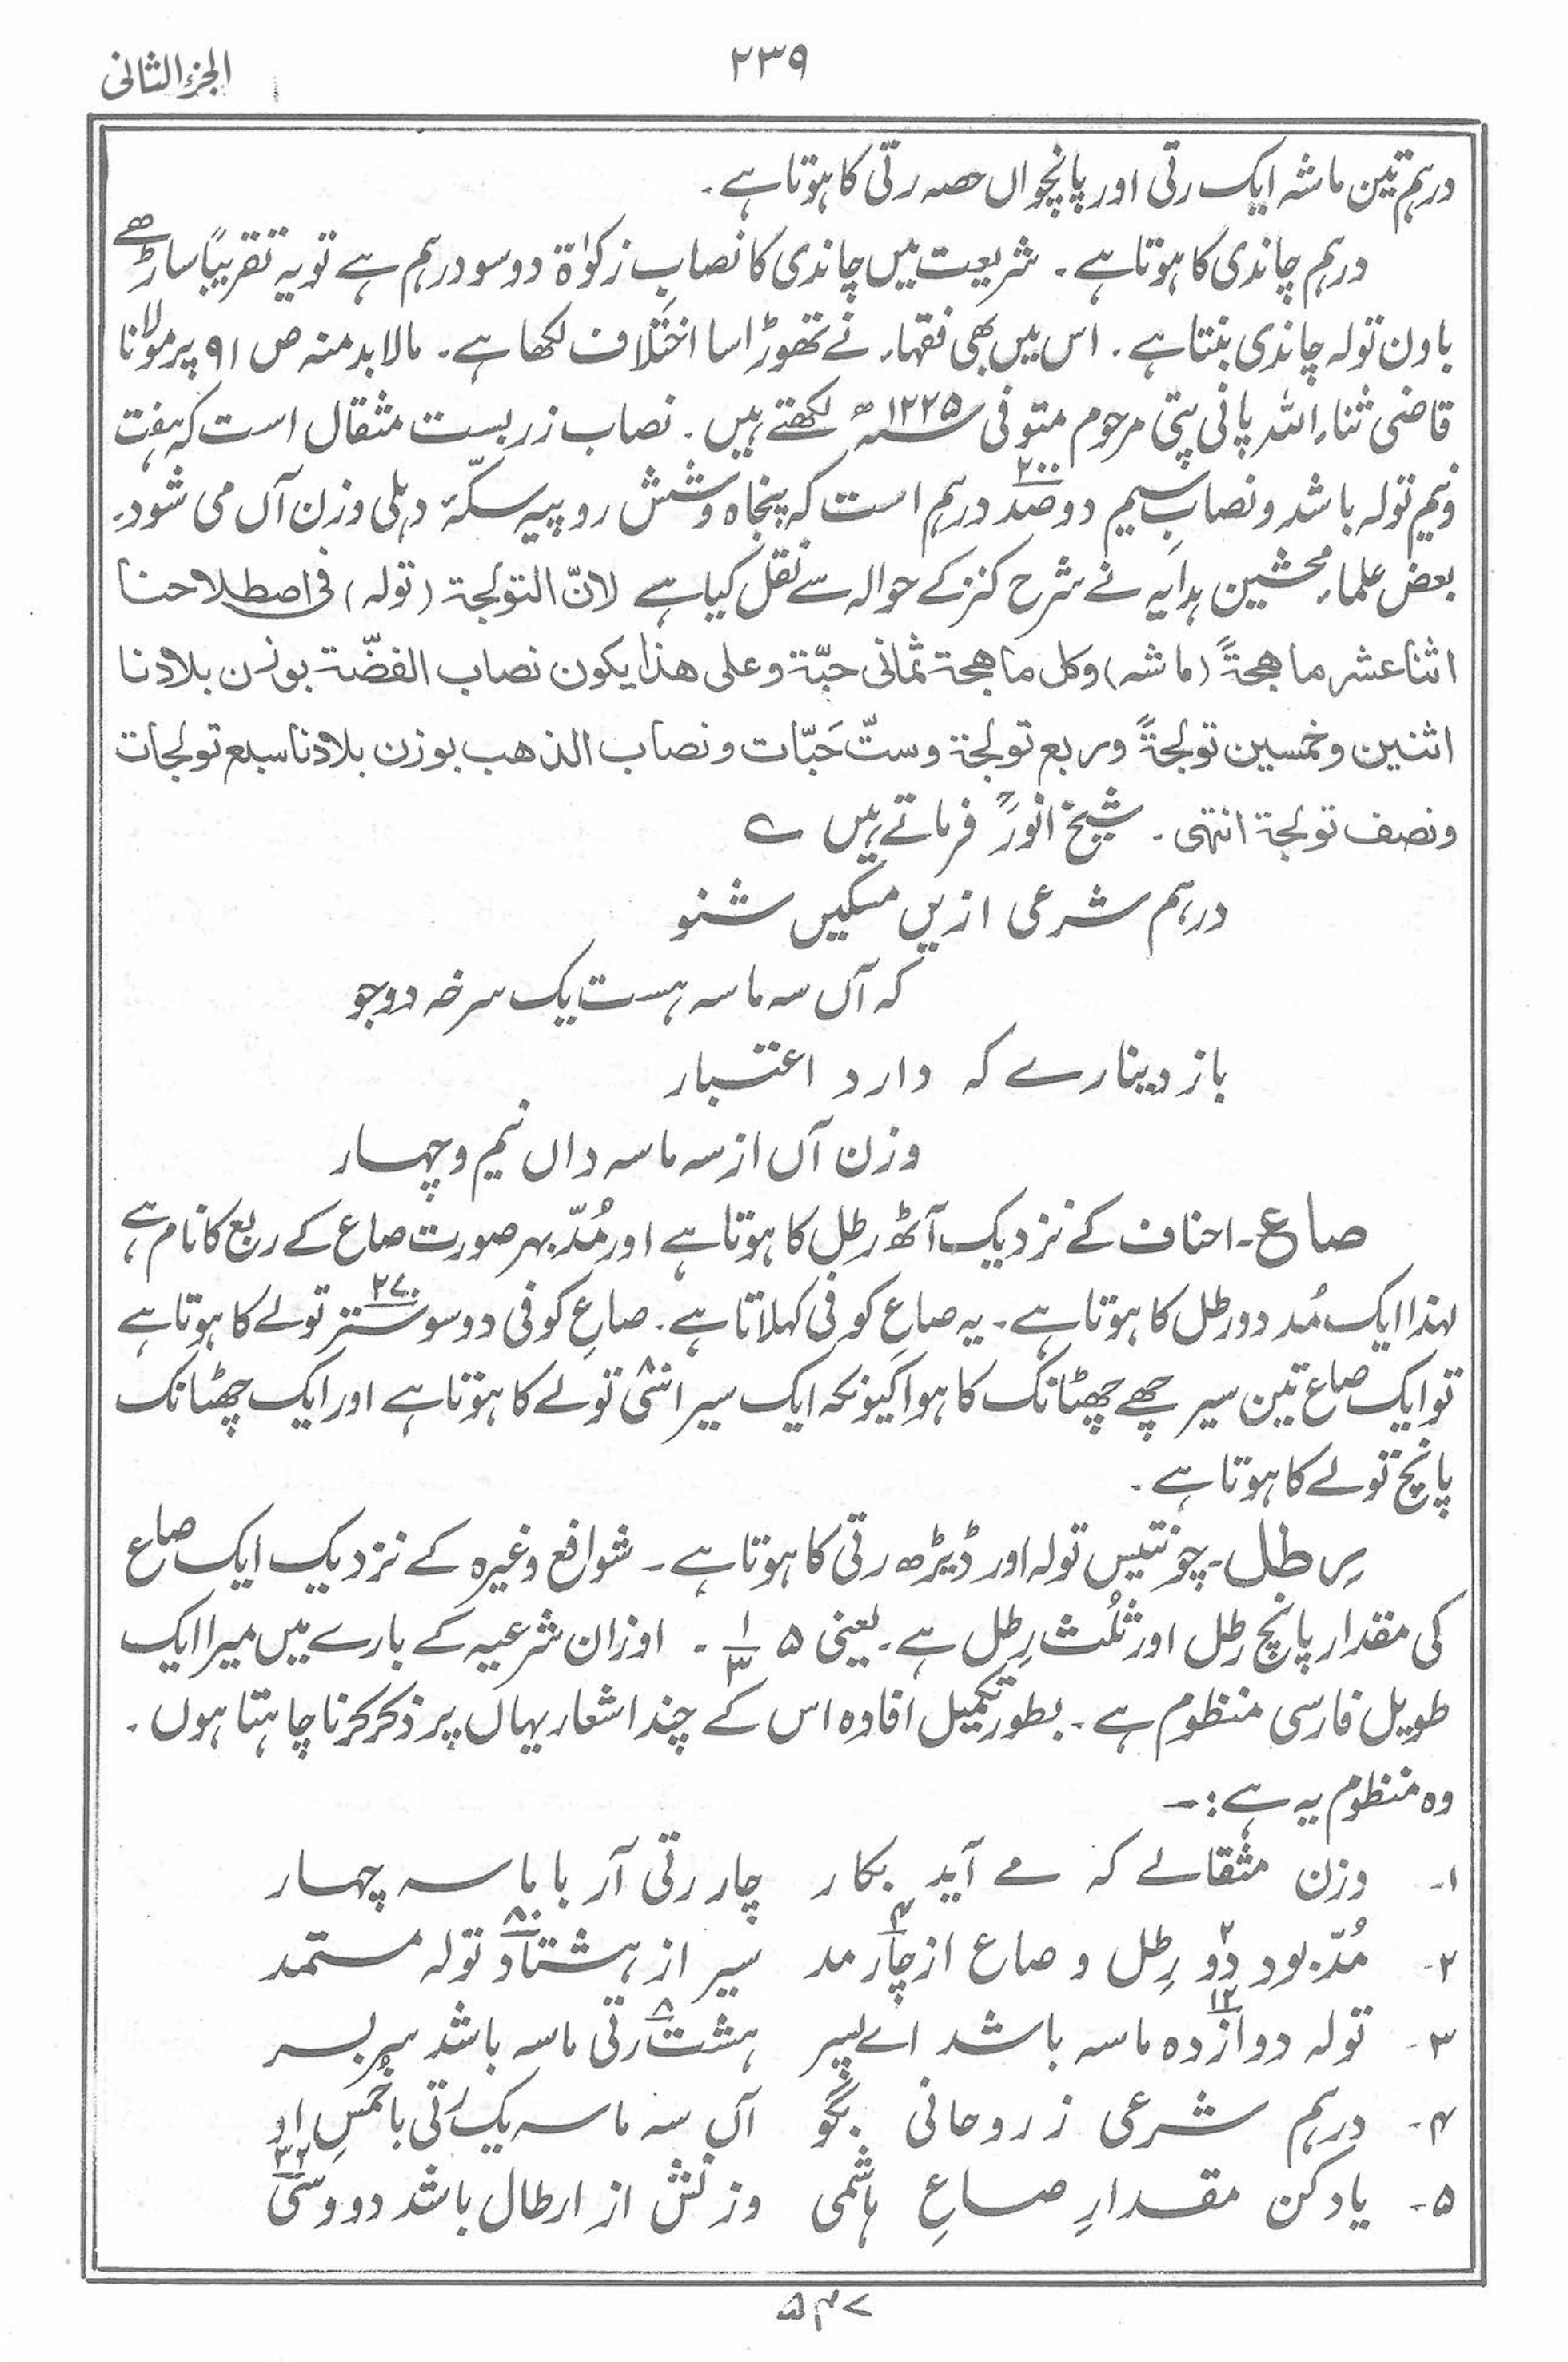 الجزء الثانی
۲۳۹
درہم تین ماشہ ایک رتی اور پانچواں حصہ رتی کا ہوتا ہے۔
درہم چاندی کا ہوتا ہے۔ شریعت میں چاندی کا نصابِ زکوٰۃ دو سو درہم ہے تو یہ تقریباً ساڑھے
باون تولہ چاندی بنتا ہے۔ اس میں بھی فقہاء نے تھوڑا سا اختلاف لکھا ہے۔ مالابدمنہ ص ۹۱ پر مولانا
قاضی ثناء اللہ پانی پتی مرحوم متوفی ۱۲۲۵ھ لکھتے ہیں۔ نصاب زر بست مثقال است کہ ہفت
ونیم تولہ باشد و نصابِ سیم دو صد ۲۰۰ درہم است کہ پنجاہ وشش روپیہ سکّۂ دہلی وزن آں می شود۔
بعض علماء محشین ہدایہ نے شرح کنز کے حوالہ سے نقل کیا ہے لانّ التولجۃ (تولہ) فی اصطلاحنا
اثنا عشر ماھجۃً (ماشہ) وکل ماھجۃ ثمانی حبّۃ وعلی ھذا یکون نصاب الفضّۃ بوزن بلادنا
اثنین وخمسین تولجۃً وربع تولجۃ وستّ حَبّات ونصاب الذھب بوزن بلادنا سبع تولجات
ونصف تولجۃ انتہی۔ شیخ انورؒ فرماتے ہیں ے
درہم شرعی ازیں مسکیں شنو
کہ آں سہ ماسہ ہست یک سرخہ دو جو
باز دینارے کہ دارد اعتبار
وزن آں از سہ ماسہ داں نیم و چہار
صاع۔ احناف کے نزدیک آٹھ رطل کا ہوتا ہے اور مُدّ بہر صورت صاع کے ربع کا نام ہے
لہذا ایک مُد دو رطل کا ہوتا ہے۔ یہ صاعِ کوفی کہلاتا ہے۔ صاعِ کوفی دو سو ستر ۲۷۰ تولے کا ہوتا ہے
تو ایک صاع تین سیر چھے چھٹانک کا ہوا کیونکہ ایک سیر اسّی ۸۰ تولے کا ہوتا ہے اور ایک چھٹانک
پانچ تولے کا ہوتا ہے۔
رِطل۔ چونتیس تولہ اور ڈیڑھ رتی کا ہوتا ہے۔ شوافع وغیرہ کے نزدیک ایک صاع
کی مقدار پانچ رطل اور ثلُث رِطل ہے۔ یعنی ۵ ۱/۳ ۔ اوزان شرعیہ کے بارے میں میرا ایک
طویل فارسی منظوم ہے۔ بطور تکمیل افادہ اس کے چند اشعار یہاں پر ذکر کرنا چاہتا ہوں۔
وہ منظوم یہ ہے :۔
۱۔ وزن مثقالے کہ مے آید بکار چار رتی آر با ماسہ چہار
۲۔ مُدّ بود دو ۲ رِطل و صاع از چار ۴ مد سیر از ہشتاد ۸۰ تولہ مستمد
۳۔ تولہ دوازدہ ۱۲ ماسہ باشد اے پسر ہشت ۸ رتی ماسہ باشد سربسر
۴۔ درہم شرعی ز روحانی بگو آں سہ ماسہ یک رتی با خُمسِ او
۵۔ یاد کن مقدارِ صاعِ ہاشمی وزنش از ارطال باشد دو و سی ۳۲
۵۴۷